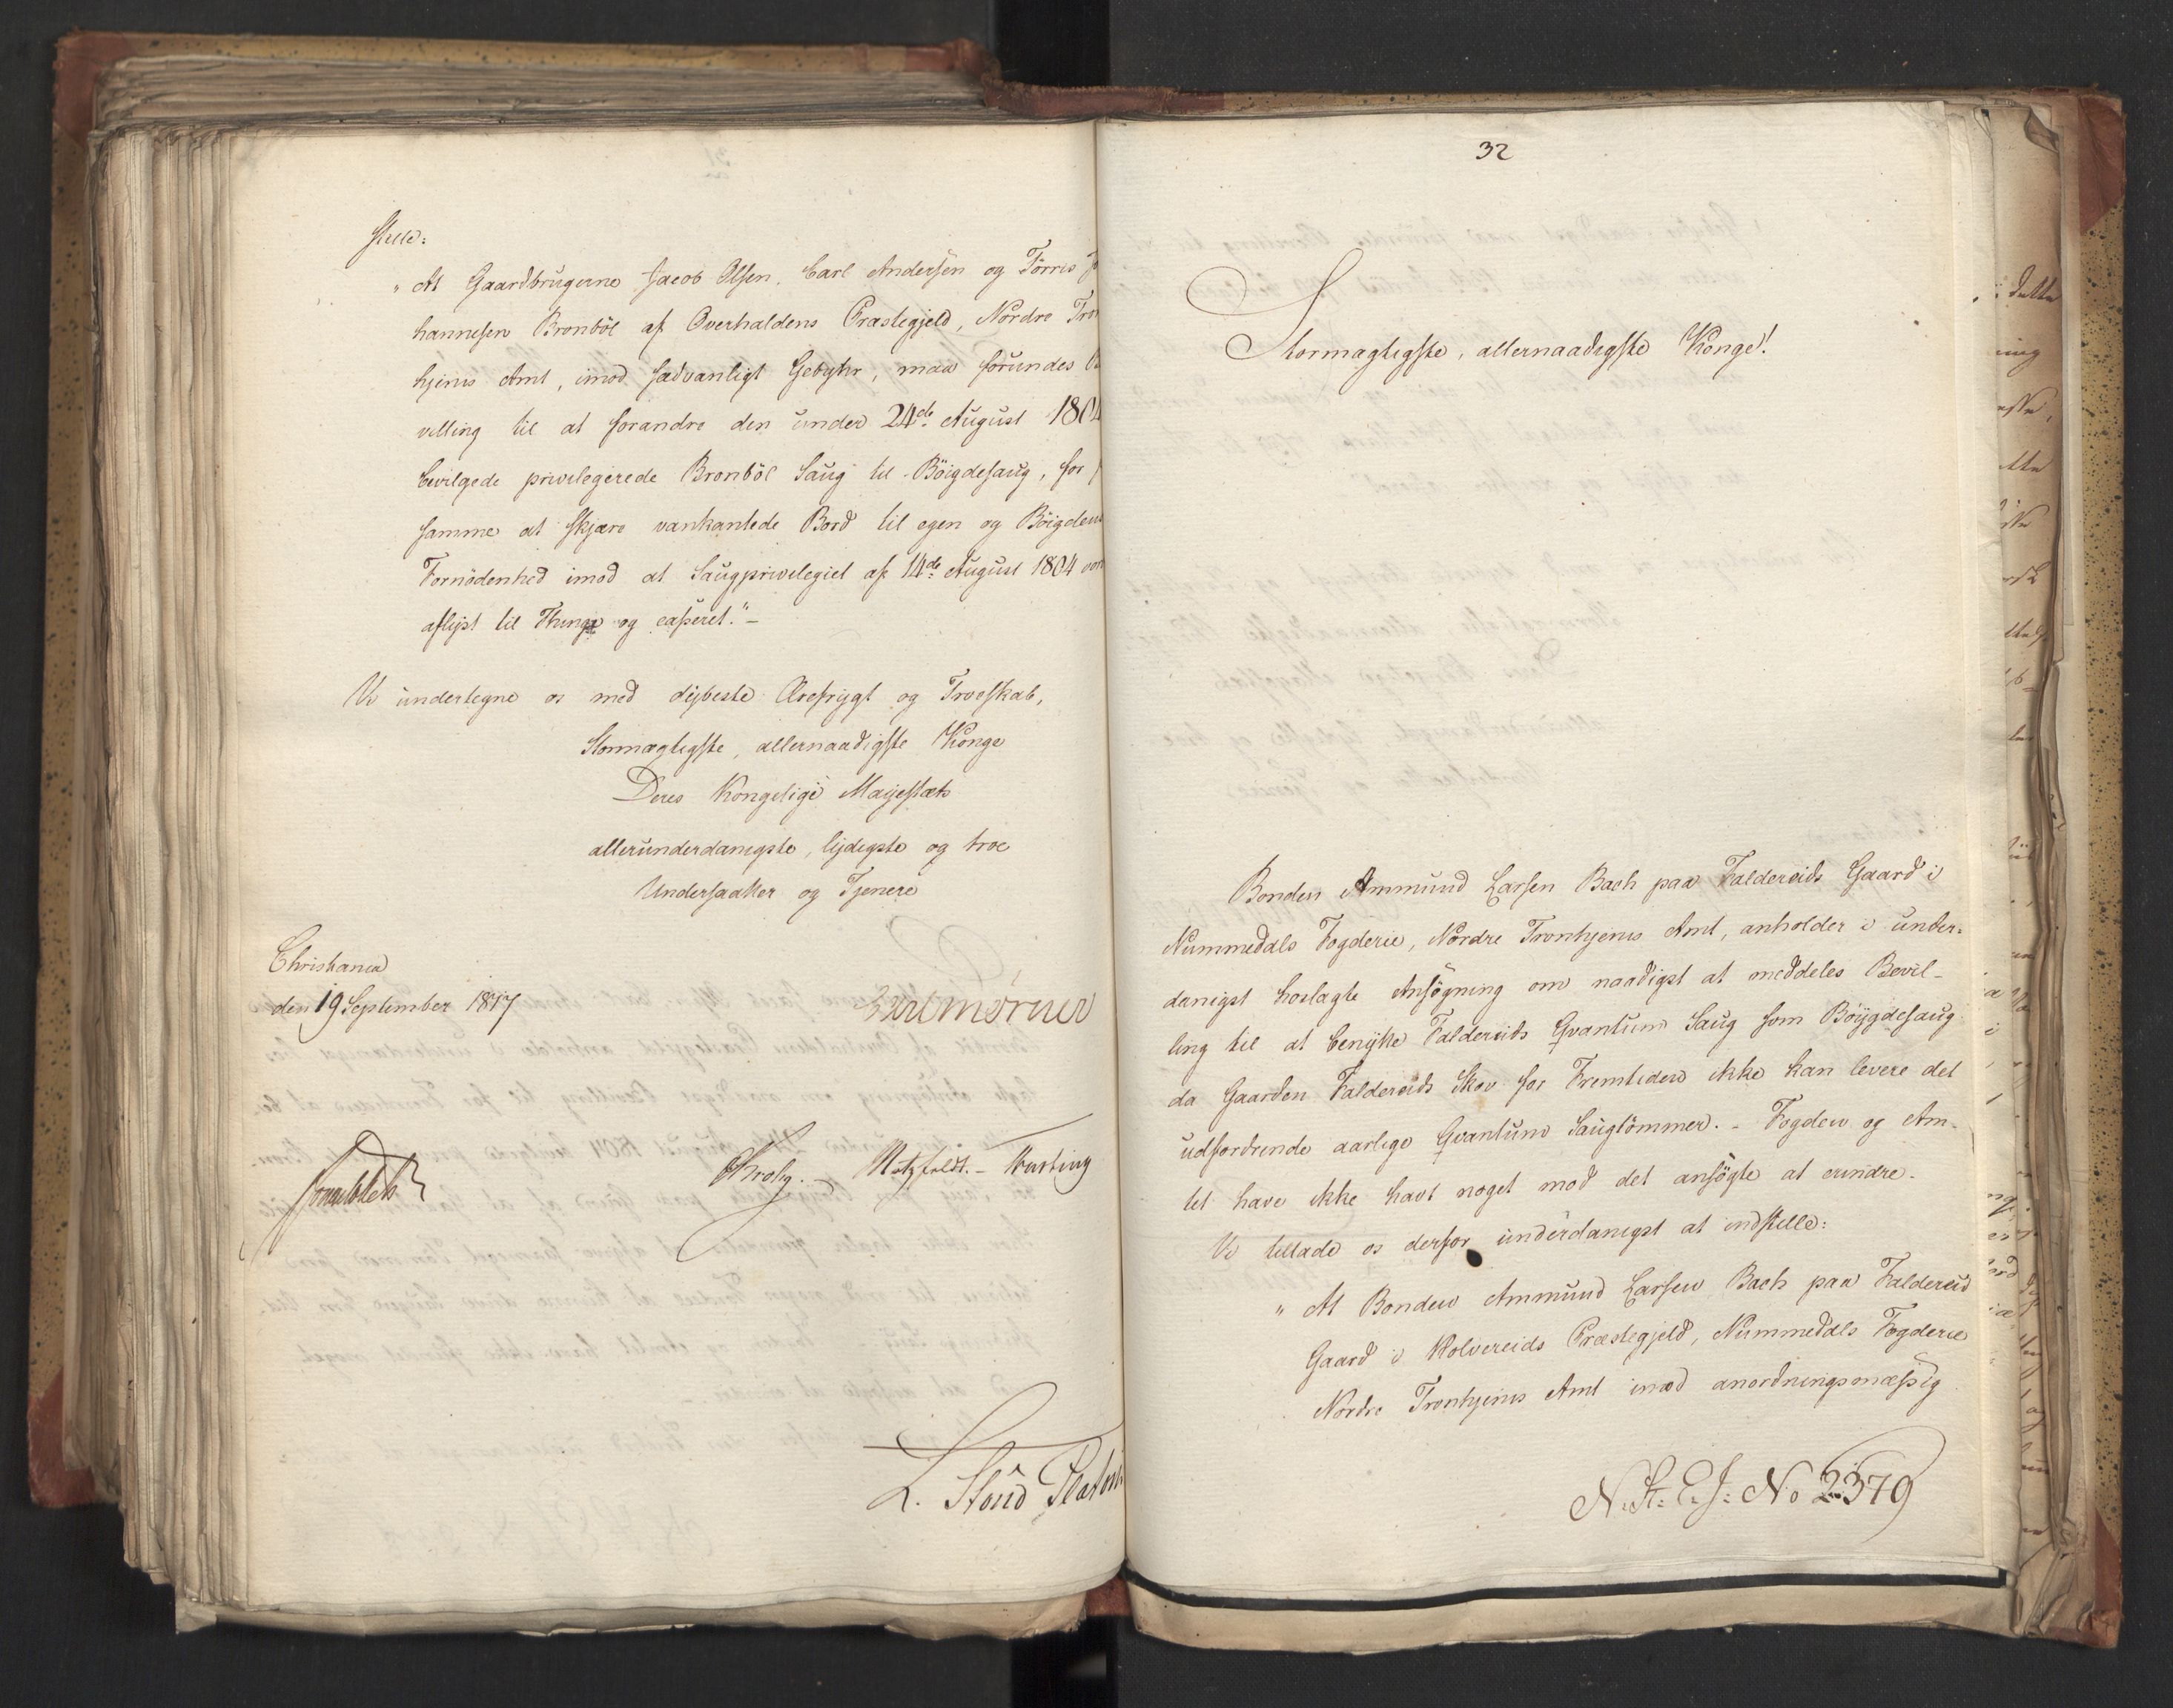 stille:
„At Gaardbrugerne Jacob Olsen, Carl Andersen og Törres Jo
hannesen Bronböl af Overhaldens Præstegjeld, Nordre Tron
hjems Amt, imod sædvanligt Gebyhr, maa forundes Be
villing til at forandre den under 24de August 1804
bevilgede privilegerede Bronböl Saug til Böigdesaug, for
samme at skjære vankantede Bord til egen og Böigdens
Fornödenhed imod at Saugprivilegiet af 14de August 1804 vor
aflyst til Thinge og casseret." –
Vi undertegne os med dybeste Ærefrygt og Troeskab,
Stormægtigste, allernaadigste Konge
Deres Kongelige Majestæts
allerunderdanigste, lydigste og troe
Undersaatter og Tjenere
Christiania
den 19 September 1817
Carl Mörner
Sommerfeldt
Krohg. Motzfeldt. – Krefting
L. Stoud Platou
32
Stormægtigste, allernaadigste Konge!
Bonden Ammund Larsen Bach paa Faldereids Gaard i
Nummedals Fogderie, Nordre Tronhjems Amt, anholder i under-
danigst hoslagte Ansögning om naadigst at meddeles Bevil-
ling til at benytte Faldereids Qvantums Saug som Böygdesaug
da Gaarden Faldereids Skov for Fremtiden ikke kan levere det
udfordrende aarlige Qvantum Saugtömmer. – Fogden og Am-
tet have ikke havt noget mod det ansögte at erindre.
Vi tillade os derfor underdanigst at indstille:
„At Bonden Ammund Larsen Bach paa Faldereid
Gaard i Kolvereids Præstegjeld, Nummedals Fogderie
Nordre Tronhjems Amt imod anordningsmæssig
N. R. E. J: No 2379